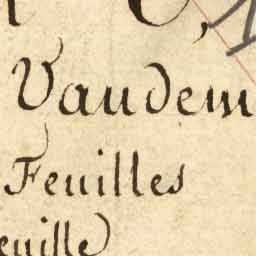 Vaudem
Feuilles
euille